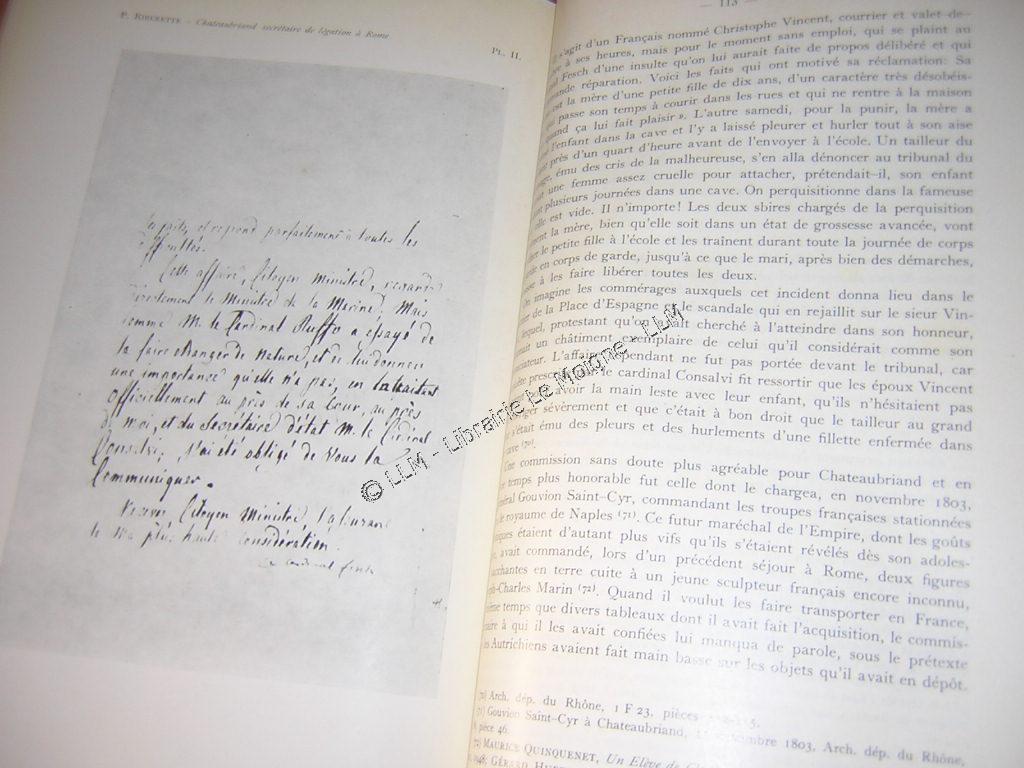 P. RIBERETTE - Chateaubriand secrétaire de légation à Rome
PL. II.
et répond parfaitement à toutes les
Cette affaire, Citoyen Ministre,
directement le Ministre de la Marine; Mais
comme M. le Cardinal Ruffo a essayé de
la faire changer de nature, et de lui donner
une importance qu'elle n'a pas, en la traitant
officiellement au près de sa Cour, au près
de moi, et du Secrétaire d'état M. le Cardinal
Consalvi; j'ai été obligé de vous la
Communiquer.
Citoyen Ministre l'assurance
de ma plus haute considération.
Le Cardinal Fesch
© LLM - Librairie Le Moigne - LLM
— 113 —
s'agit d'un Français nommé Christophe Vincent, courrier et valet de-
à ses heures, mais pour le moment sans emploi, qui se plaint au
Fesch d'une insulte qu'on lui aurait faite de propos délibéré et qui
réparation. Voici les faits qui ont motivé sa réclamation: Sa
est la mère d'une petite fille de dix ans, d'un caractère très désobéis-
passe son temps à courir dans les rues et qui ne rentre à la maison
quand ça lui fait plaisir ». L'autre samedi, pour la punir, la mère a
l'enfant dans la cave et l'y a laissé pleurer et hurler tout à son aise
près d'un quart d'heure avant de l'envoyer à l'école. Un tailleur du
ému des cris de la malheureuse, s'en alla dénoncer au tribunal du
une femme assez cruelle pour attacher, prétendait-il, son enfant
plusieurs journées dans une cave. On perquisitionne dans la fameuse
elle est vide. Il n'importe! Les deux sbires chargés de la perquisition
la mère, bien qu'elle soit dans un état de grossesse avancée, vont
petite fille à l'école et les traînent durant toute la journée de corps
en corps de garde, jusqu'à ce que le mari, après bien des démarches,
à les faire libérer toutes les deux.
On imagine les commérages auxquels cet incident donna lieu dans le
de la Place d'Espagne et le scandale qui en rejaillit sur le sieur Vin-
lequel, protestant qu'on avait cherché à l'atteindre dans son honneur,
un châtiment exemplaire de celui qu'il considérait comme son
L'affaire cependant ne fut pas portée devant le tribunal, car
le cardinal Consalvi fit ressortir que les époux Vincent
avoir la main leste avec leur enfant, qu'ils n'hésitaient pas
sévèrement et que c'était à bon droit que le tailleur au grand
s'était ému des pleurs et des hurlements d'une fillette enfermée dans
cave (70).
Une commission sans doute plus agréable pour Chateaubriand et en
temps plus honorable fut celle dont le chargea, en novembre 1803,
général Gouvion Saint-Cyr, commandant les troupes françaises stationnées
royaume de Naples (71). Ce futur maréchal de l'Empire, dont les goûts
étaient d'autant plus vifs qu'ils s'étaient révélés dès son adoles-
avait commandé, lors d'un précédent séjour à Rome, deux figures
en terre cuite à un jeune sculpteur français encore inconnu,
Charles Marin (72). Quand il voulut les faire transporter en France,
temps que divers tableaux dont il avait fait l'acquisition, le commis-
à qui il les avait confiées lui manqua de parole, sous le prétexte
Autrichiens avaient fait main basse sur les objets qu'il avait en dépôt.
70) Arch. dép. du Rhône, 1 F 23, pièces
71) Gouvion Saint-Cyr à Chateaubriand, 1803, Arch. dép. du Rhône,
pièce 46.
72) MAURICE QUINQUENET, Un Elève de
GÉRARD